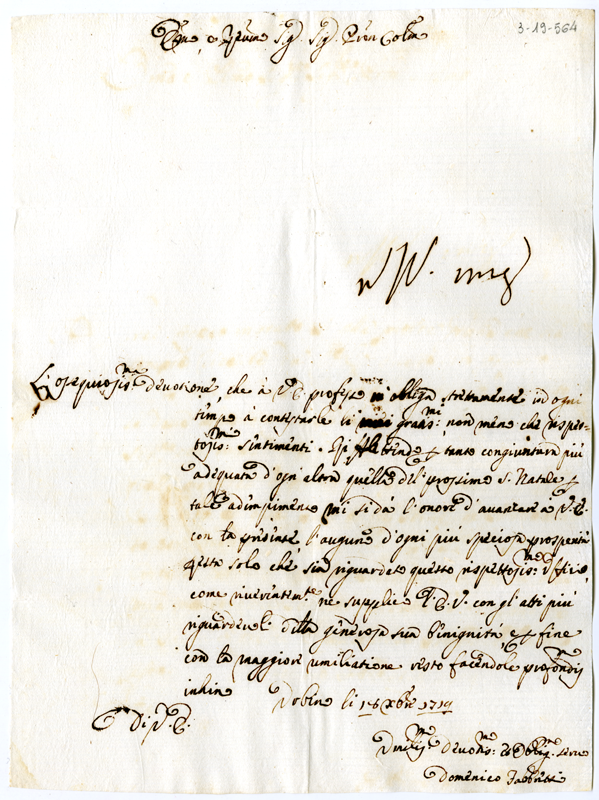 3-19-564
Ecc.mo e Sig. Sig. Pron Col.mo
L'ossequiosis.ma devotione, che à V.E. professo mi obbliga strettamente in ogni
tempo à contestarle li miei grandis.mi non meno che rispet-
tosis.mi sentimenti. tanto congiuntura più
adequata d'ogn'altra quella del prossimo S. Natale
tale adimpimento mi si dà l'onore d'avanzare à V.E.
con la presente l'augurio d'ogni più speciosa prosperità
resta solo che sia riguardato questo rispettosis.mo officio,
come riverentem.te ne supplico l'E.V. con gl'atti più
riguardevoli della generosa sua benignità, e fine
con la maggiore umiliatione resto facendole profondis.mo
inchino Dobino li 18 Xbre 1719
Di V.E.
Devotis. Oblig. Serv.
Domenico